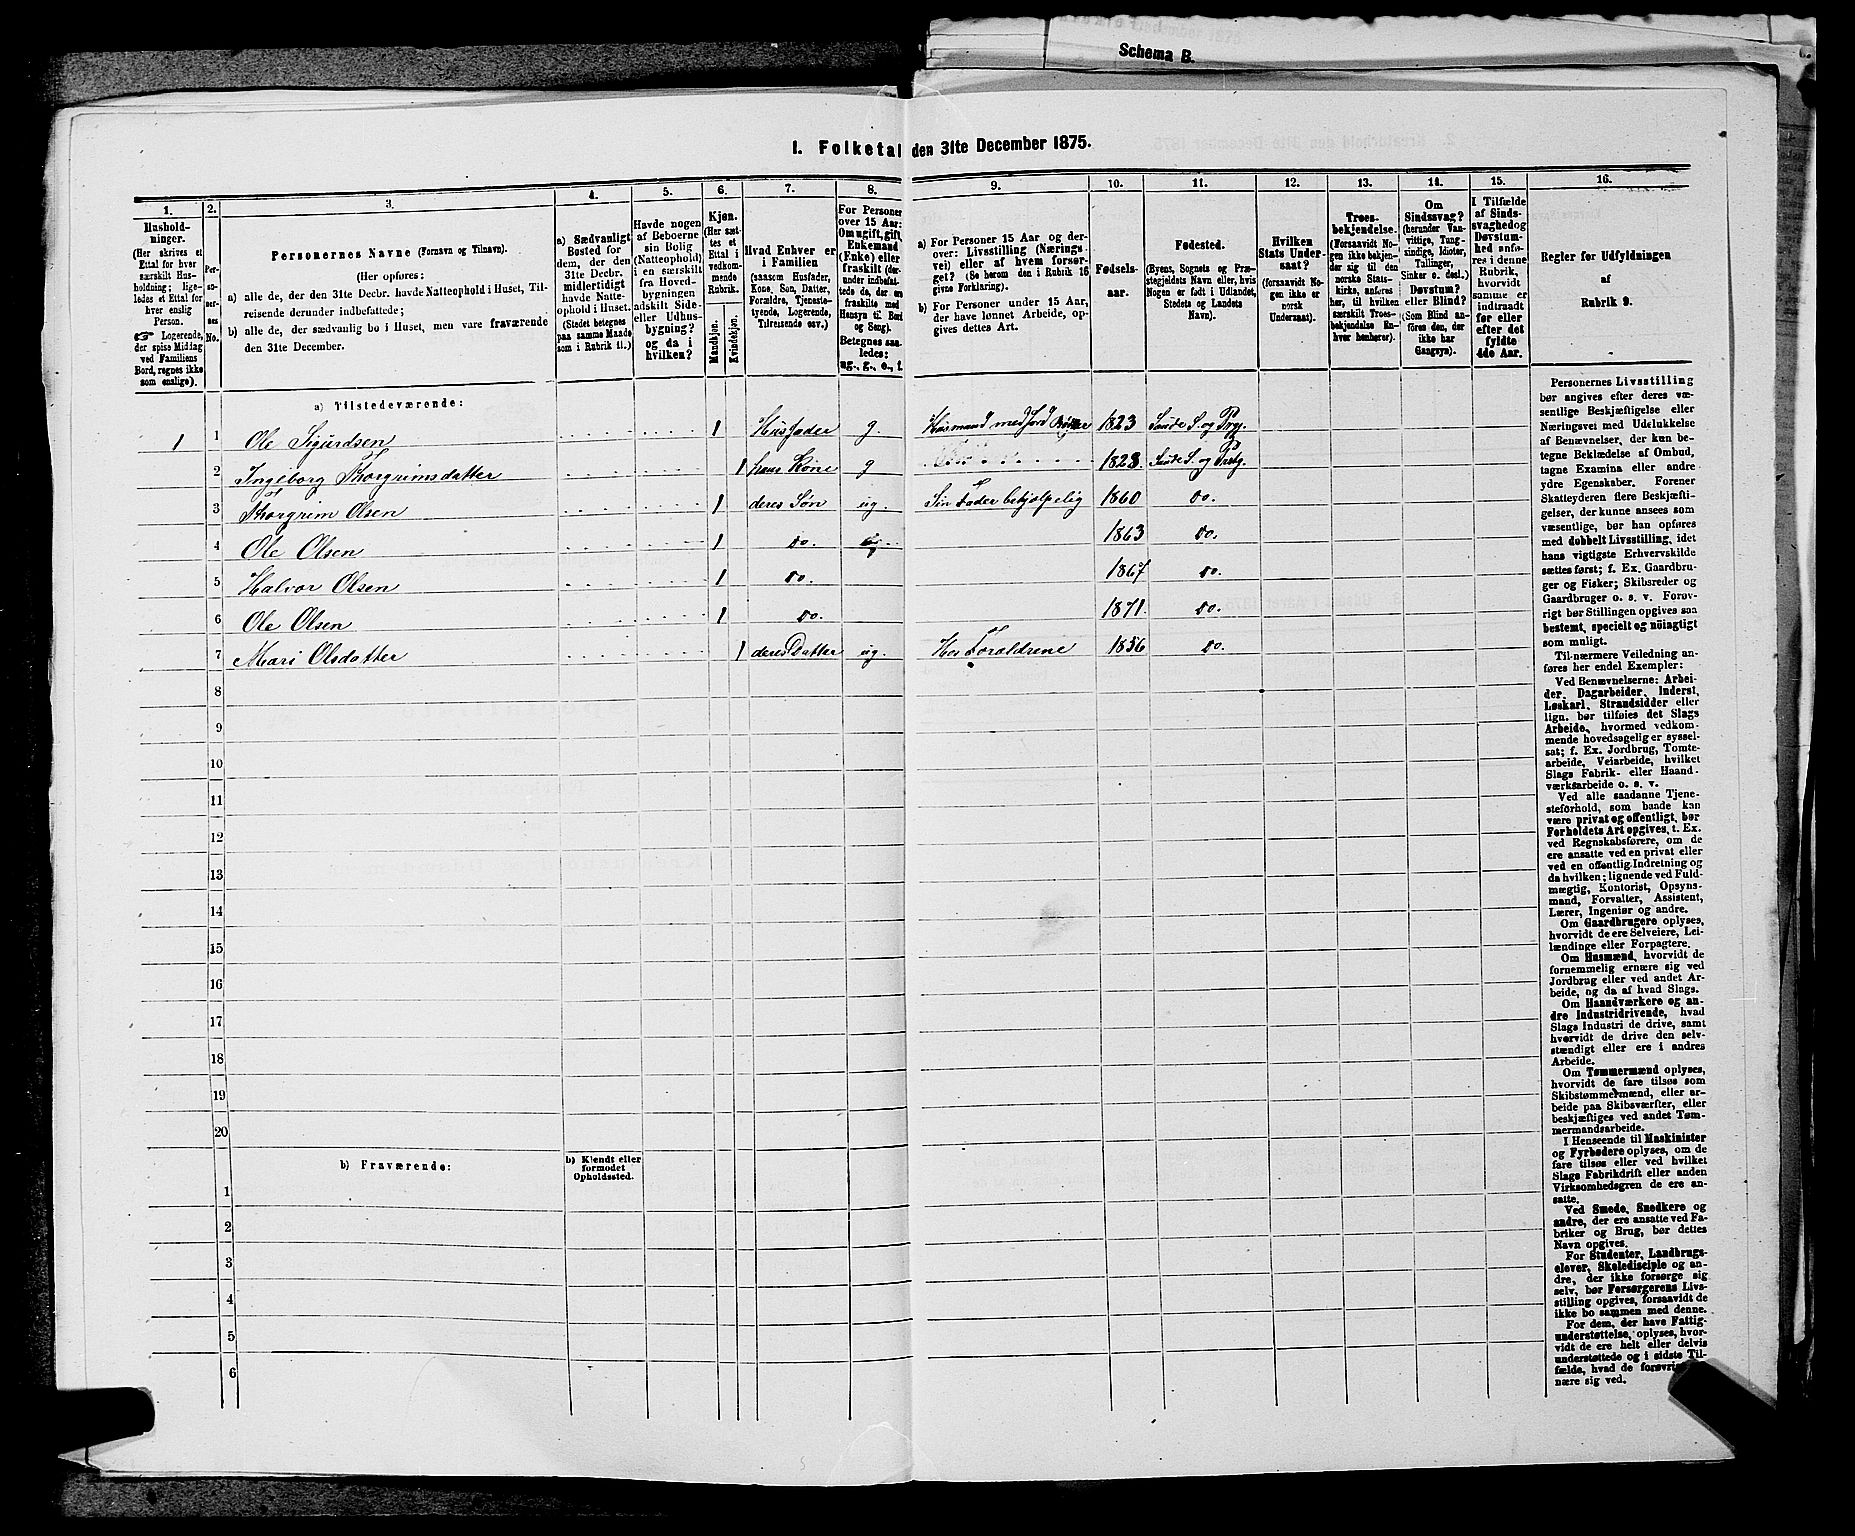 Schema B.
1. Folketal den 31te December 1875.
1. 2. 3. 4. 5. 6. 7. 8. 9. 10. 11. 12. 13. 14. 15. 16.
Husholdninger.
(Her skrives et
Ettal for hver
særskilt Husholdning;
ligeledes et Ettal for
hver enslig
Person.
☞ Logerende,
der spise Middag
ved Familiens
Bord, regnes ikke
som enslige).
Personernes No.
Personernes Navne (Fornavn og Tilnavn).
(Her opføres:
a) alle de, der den 31te Decbr. havde Natteophold i Huset, Tilreisende derunder indbefattede;
b) alle de, der sædvanlig bo i Huset, men vare fraværende
den 31te December.
a) Sædvanligt
Bosted for
dem, der den
31te Decbr.
midlertidigt
havde Natteophold i Huset.
(Stedet betegnes
paa samme Maade
som i Rubrik 11.)
Havde nogen
af Beboerne
sin Bolig
(Natteophold)
i en særskilt
fra Hovedbygningen
adskilt Side-
eller Udhusbygning?
og da i
hvilken?
Kjøn.
(Her sættes et
Ettal i
vedkommende
Rubrik.
Mandkjøn.
Kvindekjøn.
Hvad Enhver er
i Familien
(saasom Husfader,
Kone, Søn, Datter,
Forældre, Tjenestetyende, Logerende,
Tilreisende osv.)
For Personer
over 15 Aar:
Om ugift, gift,
Enkemand
(Enke) eller
fraskilt (derunder indbefattede de, der ere
fraskilte med
Hensyn til Bord
og Seng).
Betegnes saaledes:
ug., g., e., f.
a) For Personer 15 Aar og derover: Livsstilling (Næringsvei) eller af hvem forsørget? (Se herom den i Rubrik 16
givne Forklaring).
b) For Personer under 15 Aar,
der have lønnet Arbeide, opgives dettes Art.
Fødselsaar.
Fødested.
(Byens, Sognets og Præstegjeldets Navn eller, hvis
Nogen er født i Udlandet,
Stedets og Landets
Navn).
Hvilken
Stats Undersaat?
(forsaavidt Nogen ikke er
norsk
Undersaat).
Troesbekjendelse.
(Forsaavidt Nogen ikke bekjender sig til den
norske Statskirke, anføres
her, til hvilken
særskilt Troesbekjendelse Enhver henhører).
Om
Sindssvag?
(herunder Vanvittige, Tungsindige, Idioter,
Tullinger,
Sinker o. desl.)
Døvstum?
eller Blind?
(Som Blind anføres den, der
ikke har
Gangsyn).
I Tilfælde
af Sindssvaghed og
Døvstumhed anføres i denne
Rubrik,
hvorvidt
samme er
indtraadt
før eller
efter det
fyldte
4de Aar.
Regler for Udfyldningen
af
Rubrik 9.
a) Tilstedeværende:
1 1 Ole Sigurdsen 1 Husfader g. Husmand med Jord 1823 S. og Prg.
2 Ingeborg Thorgrimsdatter 1 hans Kone g 1828 S. og Prstg.
3 Thorgrim Olsen 1 deres Søn ug. Sin Fader behjælpelig 1860 do.
4 Ole Olsen 1 do. 1863 do.
5 Halvor Olsen 1 do. 1867 do.
6 Ole Olsen 1 do. 1871. do.
7 Mari Olsdatter 1 deres Datter ug. Hos Forældrene 1856 do.
8
9
10
11
12
13
14
15
16
17
18
19
20
b) Fraværende:
b) Kjendt eller
formodet
Opholdssted.
1
2
3
4
5
6
Personernes Livsstilling
bør angives efter deres væsentlige Beskjæftigelse eller
Næringsvei med Udelukkelse
af Benævnelser, der kun betegne Beklædelse af Ombud,
tagne Examina eller andre
ydre Egenskaber. Forener
Skatteyderen flere Beskjæftigelser, der kunne ansees som
væsentlige, bør han opføres
med dobbelt Livsstilling, idet
hans vigtigste Erhvervskilde
sættes først; f. Ex. Gaardbruger og Fisker; Skibsreder og
Gaardbruger o. s. v. Forøvrigt bør Stillingen opgives saa
bestemt, specielt og nöiagtigt
som muligt.
Til nærmere Veiledning anføres her endel Exempler:
Ved Benævnelserne: Arbeider, Dagarbeider, Inderst,
Løskarl, Strandsidder eller
lign. bør tilføies det Slags
Arbeide, hvormed vedkommende hovedsagelig er sysselsat; f. Ex. Jordbrug, Tomtearbeide, Veiarbeide, hvilket
Slags Fabrik- eller Haandværksarbeide o. s. v.
Ved alle saadanne Tjenesteforhold, som baade kan
være privat og offentligt, bør
Forholdets Art opgives, t. Ex.
ved Regnskabsførere, om de
ere ansatte ved en privat eller
ved en offentlig Indretning og
da hvilken; lignende ved Fuldmægtig, Kontorist, Opsynsmand, Forvalter, Assistent,
Lærer, Ingeniør og andre.
Om Gaardbrugere oplyses,
hvorvidt de ere Selveiere, Leilændinge eller Forpagtere.
Om Husmænd, hvorvidt de
fornemmelig ernære sig ved
Jordbrug eller ved andet Arbeide, og da af hvad Slags.
Om Haandværkere og andre Industridrivende, hvad
Slags Industri de drive, samt
hvorvidt de drive den selvstændigt eller ere i andres
Arbeide.
Om Tømmermænd oplyses,
hvorvidt de fare tilsøs som
Skibstømmermænd, eller arbeide paa Skibsværfter, eller
beskjæftiges ved andet Tømmermandsarbeide.
I Henseende til Maskinister
og Fyrbødere oplyses, om de
fare tilsøs eller ved hvilket
Slags Fabrikdrift eller anden
Virksomhedsgren de ere ansatte.
Ved Smede, Snedkere og
andre, der ere ansatte ved Fabriker og Brug, bør dettes
Navn opgives.
For Studenter, Landbrugselever, Skoledisciple og andre, der ikke forsørge sig
selv, bør Forsørgerens Livsstilling opgives, forsaavidt de
ikke bo sammen med denne.
For dem, der have Fattigunderstøttelse, oplyses, hvorvidt de ere helt eller delvis
understøttede og i sidste Tilfælde, hvad de forøvrigt
nære sig ved.